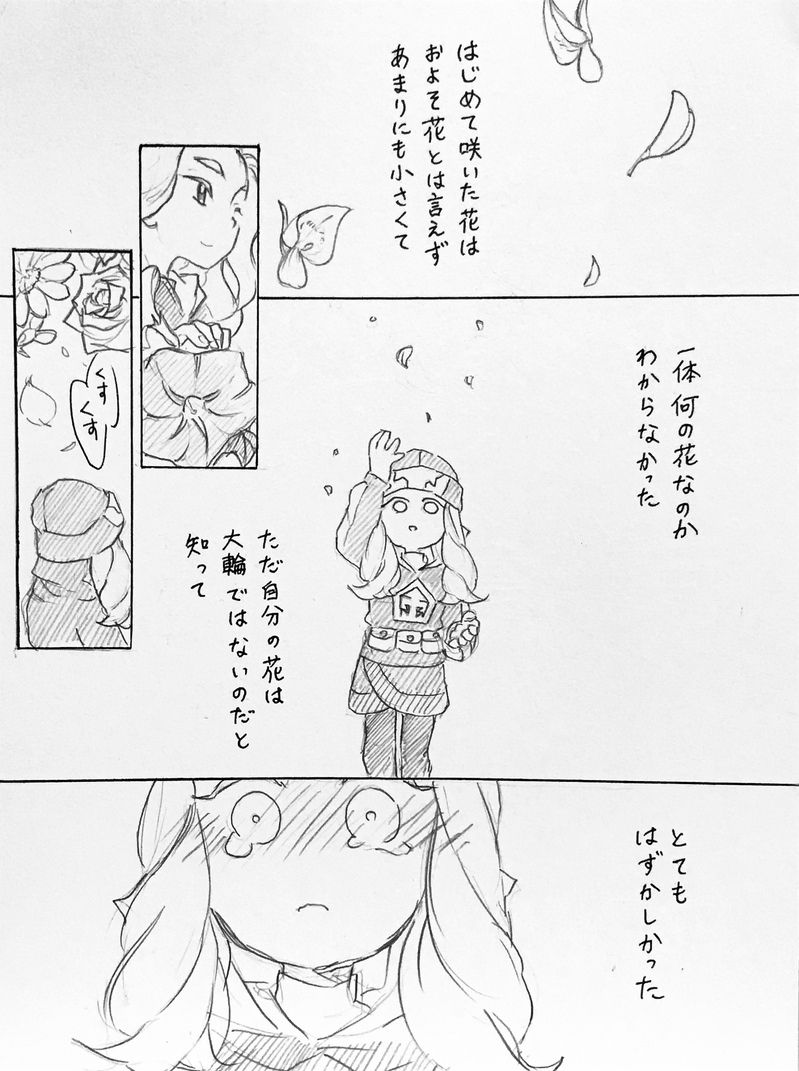 はじめて咲いた花は
およそ花とは言えず
あまりにも小さくて
一体何の花なのか
わからなかった
ただ自分の花は
大輪ではないのだと
知って
くす
くす
とても
はずかしかった